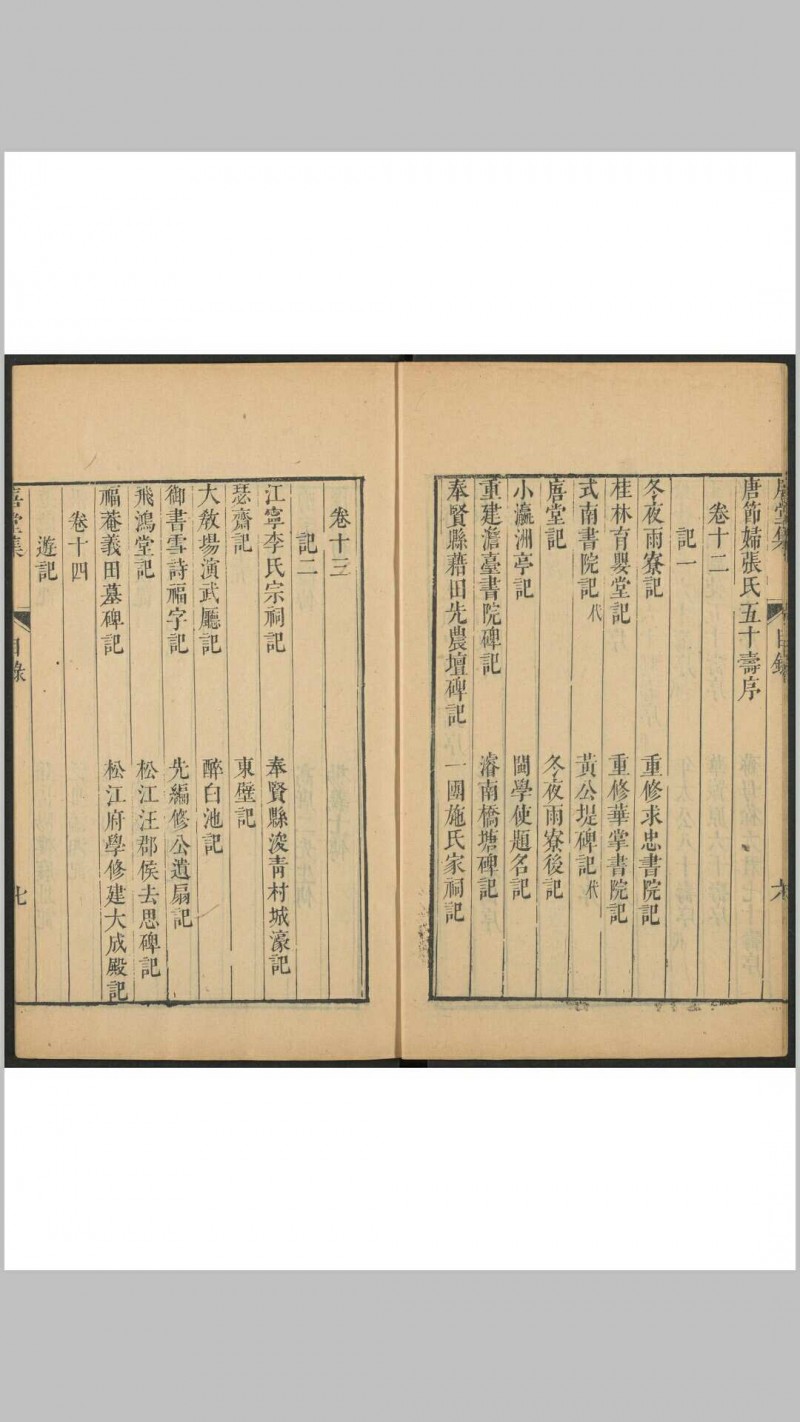 唐節婦張氏五十壽序
卷十二
記一
冬夜雨寮記　重修求忠書院記
桂林育嬰堂記　重修華掌書院記
式南書院記代　黃公堤碑記代
㾗堂記　冬夜雨寮後記
小瀛洲亭記　閩學使題名記
重建澹臺書院碑記　濬南橋塘碑記
奉賢縣藉田先農壇碑記　一團施氏家祠記
卷十三
記二
江寧李氏宗祠記　奉賢縣浚青村城濠記
瑟齋記　東壁記
大教場演武廳記　醉白池記
御書雪詩福字記　先編修公遺扇記
飛鴻堂記　松江汪郡侯去思碑記
福菴義田墓碑記　松江府學修建大成殿記
卷十四
遊記
堂集　目錄　七